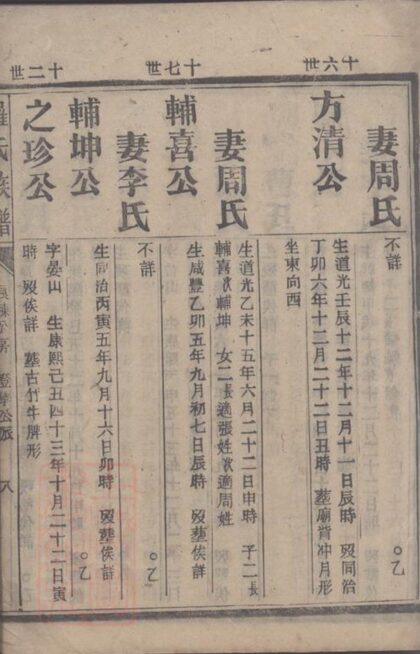 十六世
妻周氏
不詳
方清公
生道光壬辰十二年十二月十一日辰時 歿同治
丁卯六年十二月二十二日丑時 塟廟背冲月形
坐東向西
十七世
妻周氏
生道光乙未十五年六月二十二日申時 子二長
輔喜次輔坤 女二長適張姓次適周姓
輔喜公
生咸豐乙卯五年九月初七日辰時 歿塟俟詳 ○乙
妻李氏
不詳
輔坤公
生同治丙寅五年九月十六日卯時 歿塟俟詳 ○乙
十二世
之珍公
字晏山 生康熙己丑四十三年十月二十二日寅
時 歿俟詳 塟古竹牛脾形
羅氏族譜
公派 八